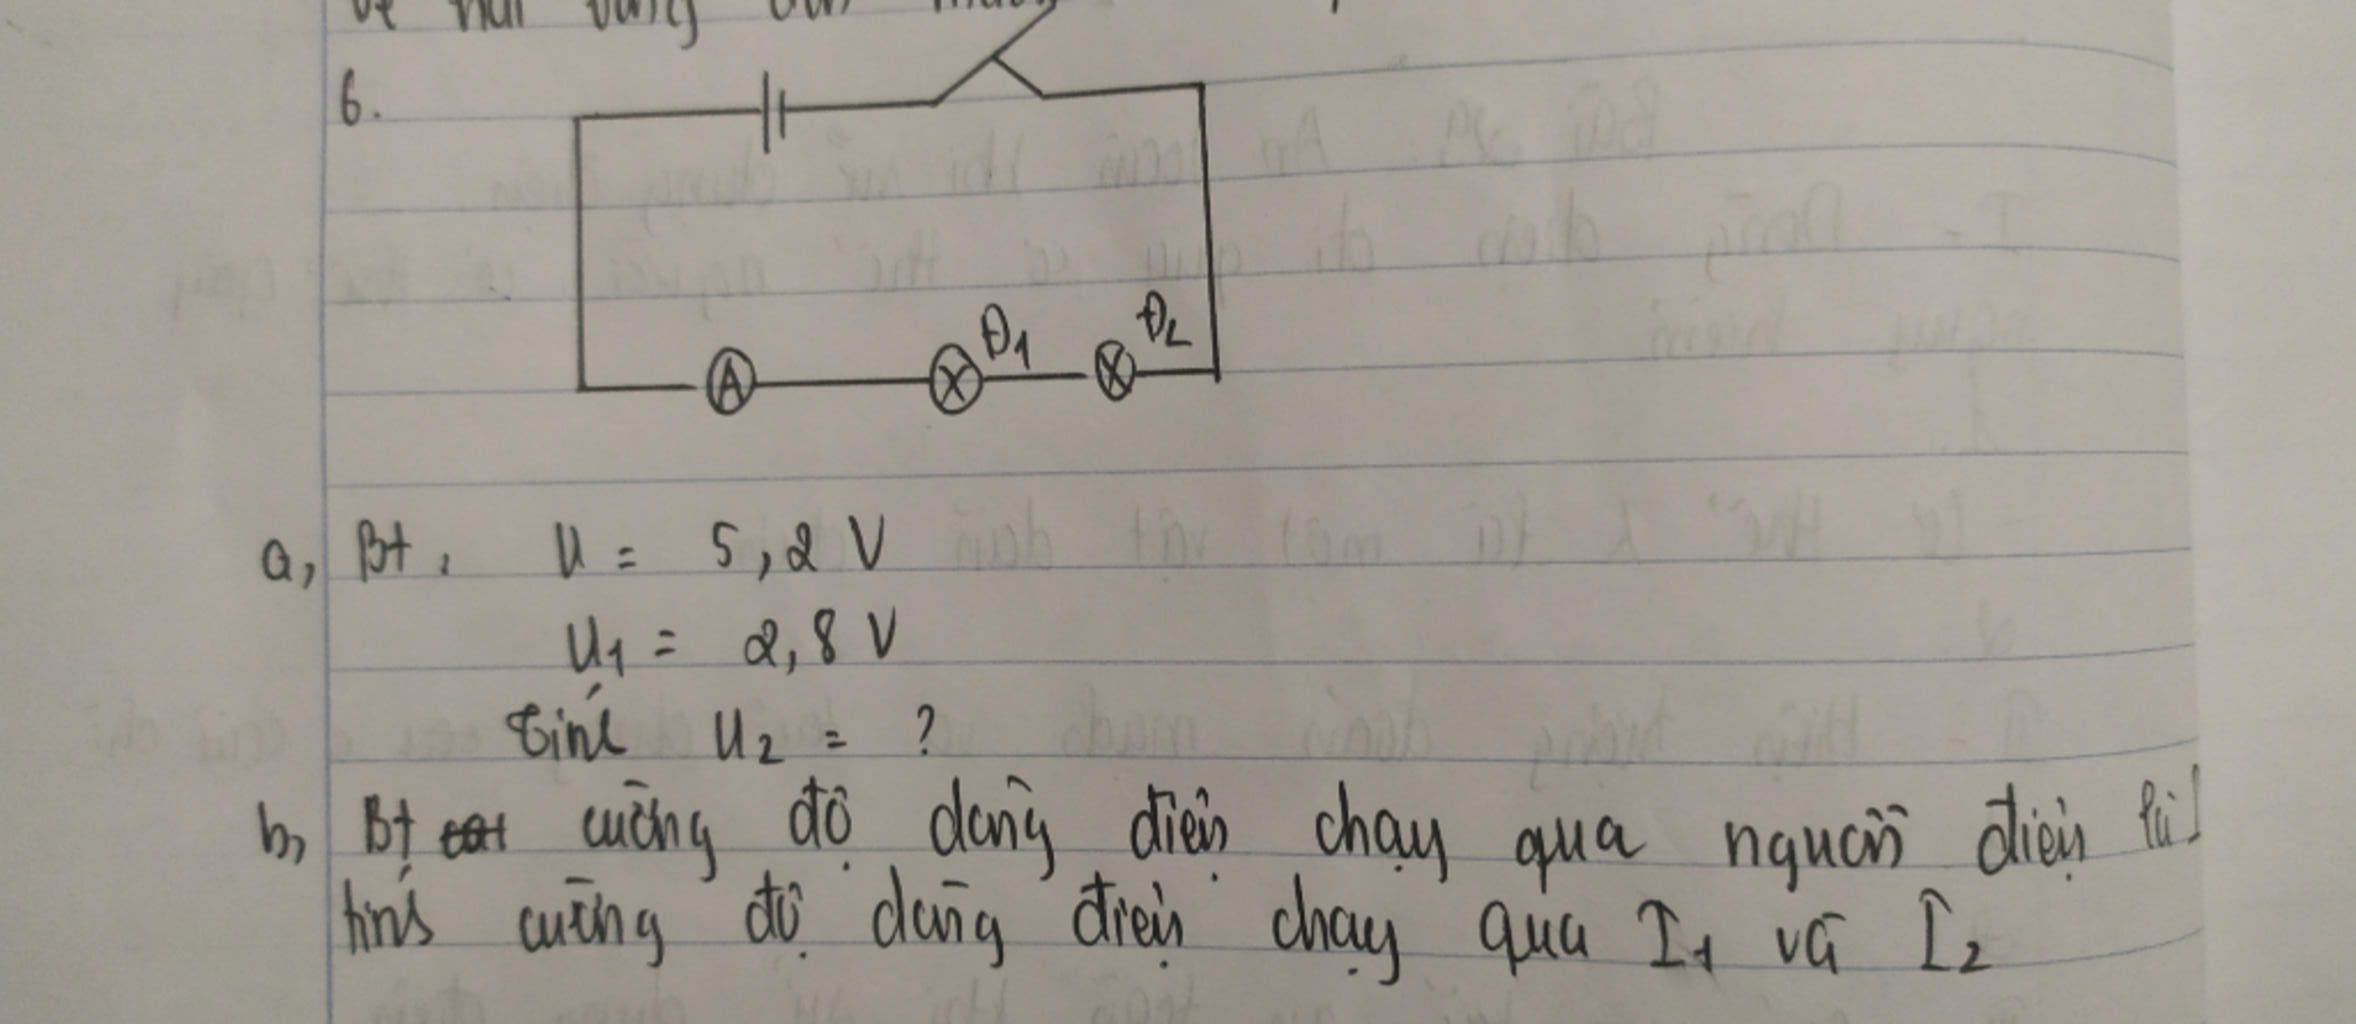 6.
A
Đ1
Đ2
a, Bt, U = 5,2 V
U1 = 2,8 V
Tính U2 = ?
b, Bt cường độ dòng điện chạy qua nguồn điện là
tính cường độ dòng điện chạy qua I1 và I2